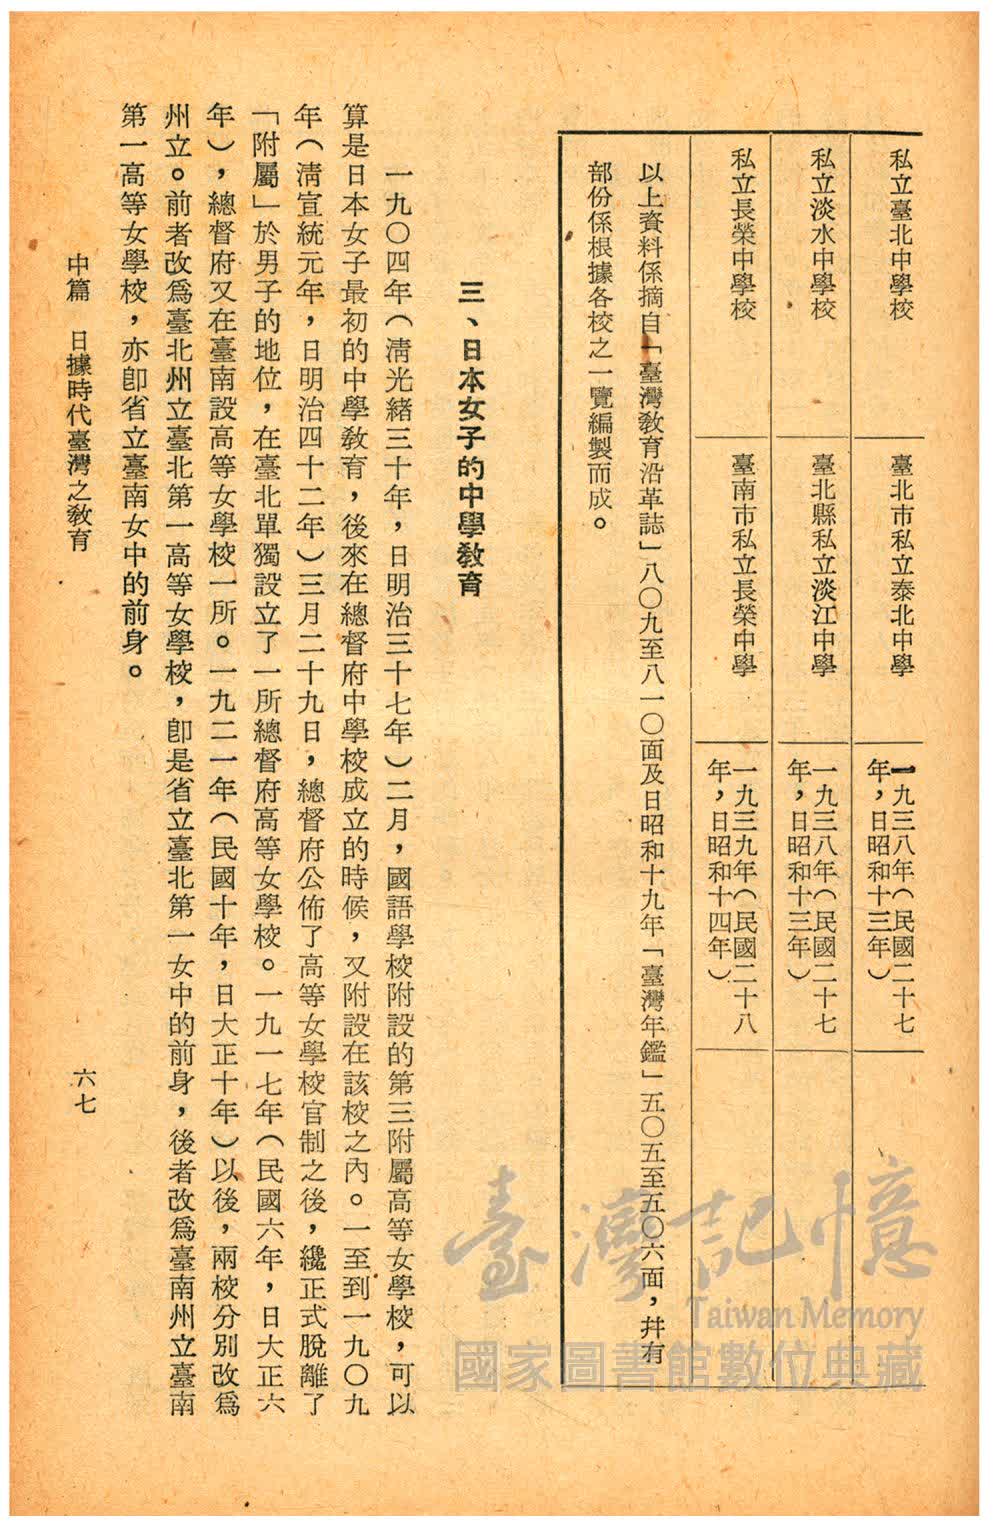 私立臺北中學校
臺北市私立泰北中學
一九三八年（民國二十七
年，日昭和十三年）
私立淡水中學校
臺北縣私立淡江中學
一九三八年（民國二十七
年，日昭和十三年）
私立長榮中學校
臺南市私立長榮中學
一九三九年（民國二十八
年，日昭和十四年）
以上資料係摘自「臺灣教育沿革誌」八〇九至八一〇面及日昭和十九年「臺灣年鑑」五〇五至五〇六面，幷有
部份係根據各校之一覽編製而成。
三、日本女子的中學教育
一九〇四年（淸光緒三十年，日明治三十七年）二月，國語學校附設的第三附屬高等女學校，可以
算是日本女子最初的中學教育，後來在總督府中學校成立的時候，又附設在該校之內。一至到一九〇九
年（淸宣統元年，日明治四十二年）三月二十九日，總督府公佈了高等女學校官制之後，纔正式脫離了
「附屬」於男子的地位，在臺北單獨設立了一所總督府高等女學校。一九一七年（民國六年，日大正六
年），總督府又在臺南設高等女學校一所。一九二一年（民國十年，日大正十年）以後，兩校分別改爲
州立。前者改爲臺北州立臺北第一高等女學校，卽是省立臺北第一女中的前身，後者改爲臺南州立臺南
第一高等女學校，亦卽省立臺南女中的前身。
中篇　日據時代臺灣之教育
六七
臺灣記憶
Taiwan Memory
國家圖書館數位典藏